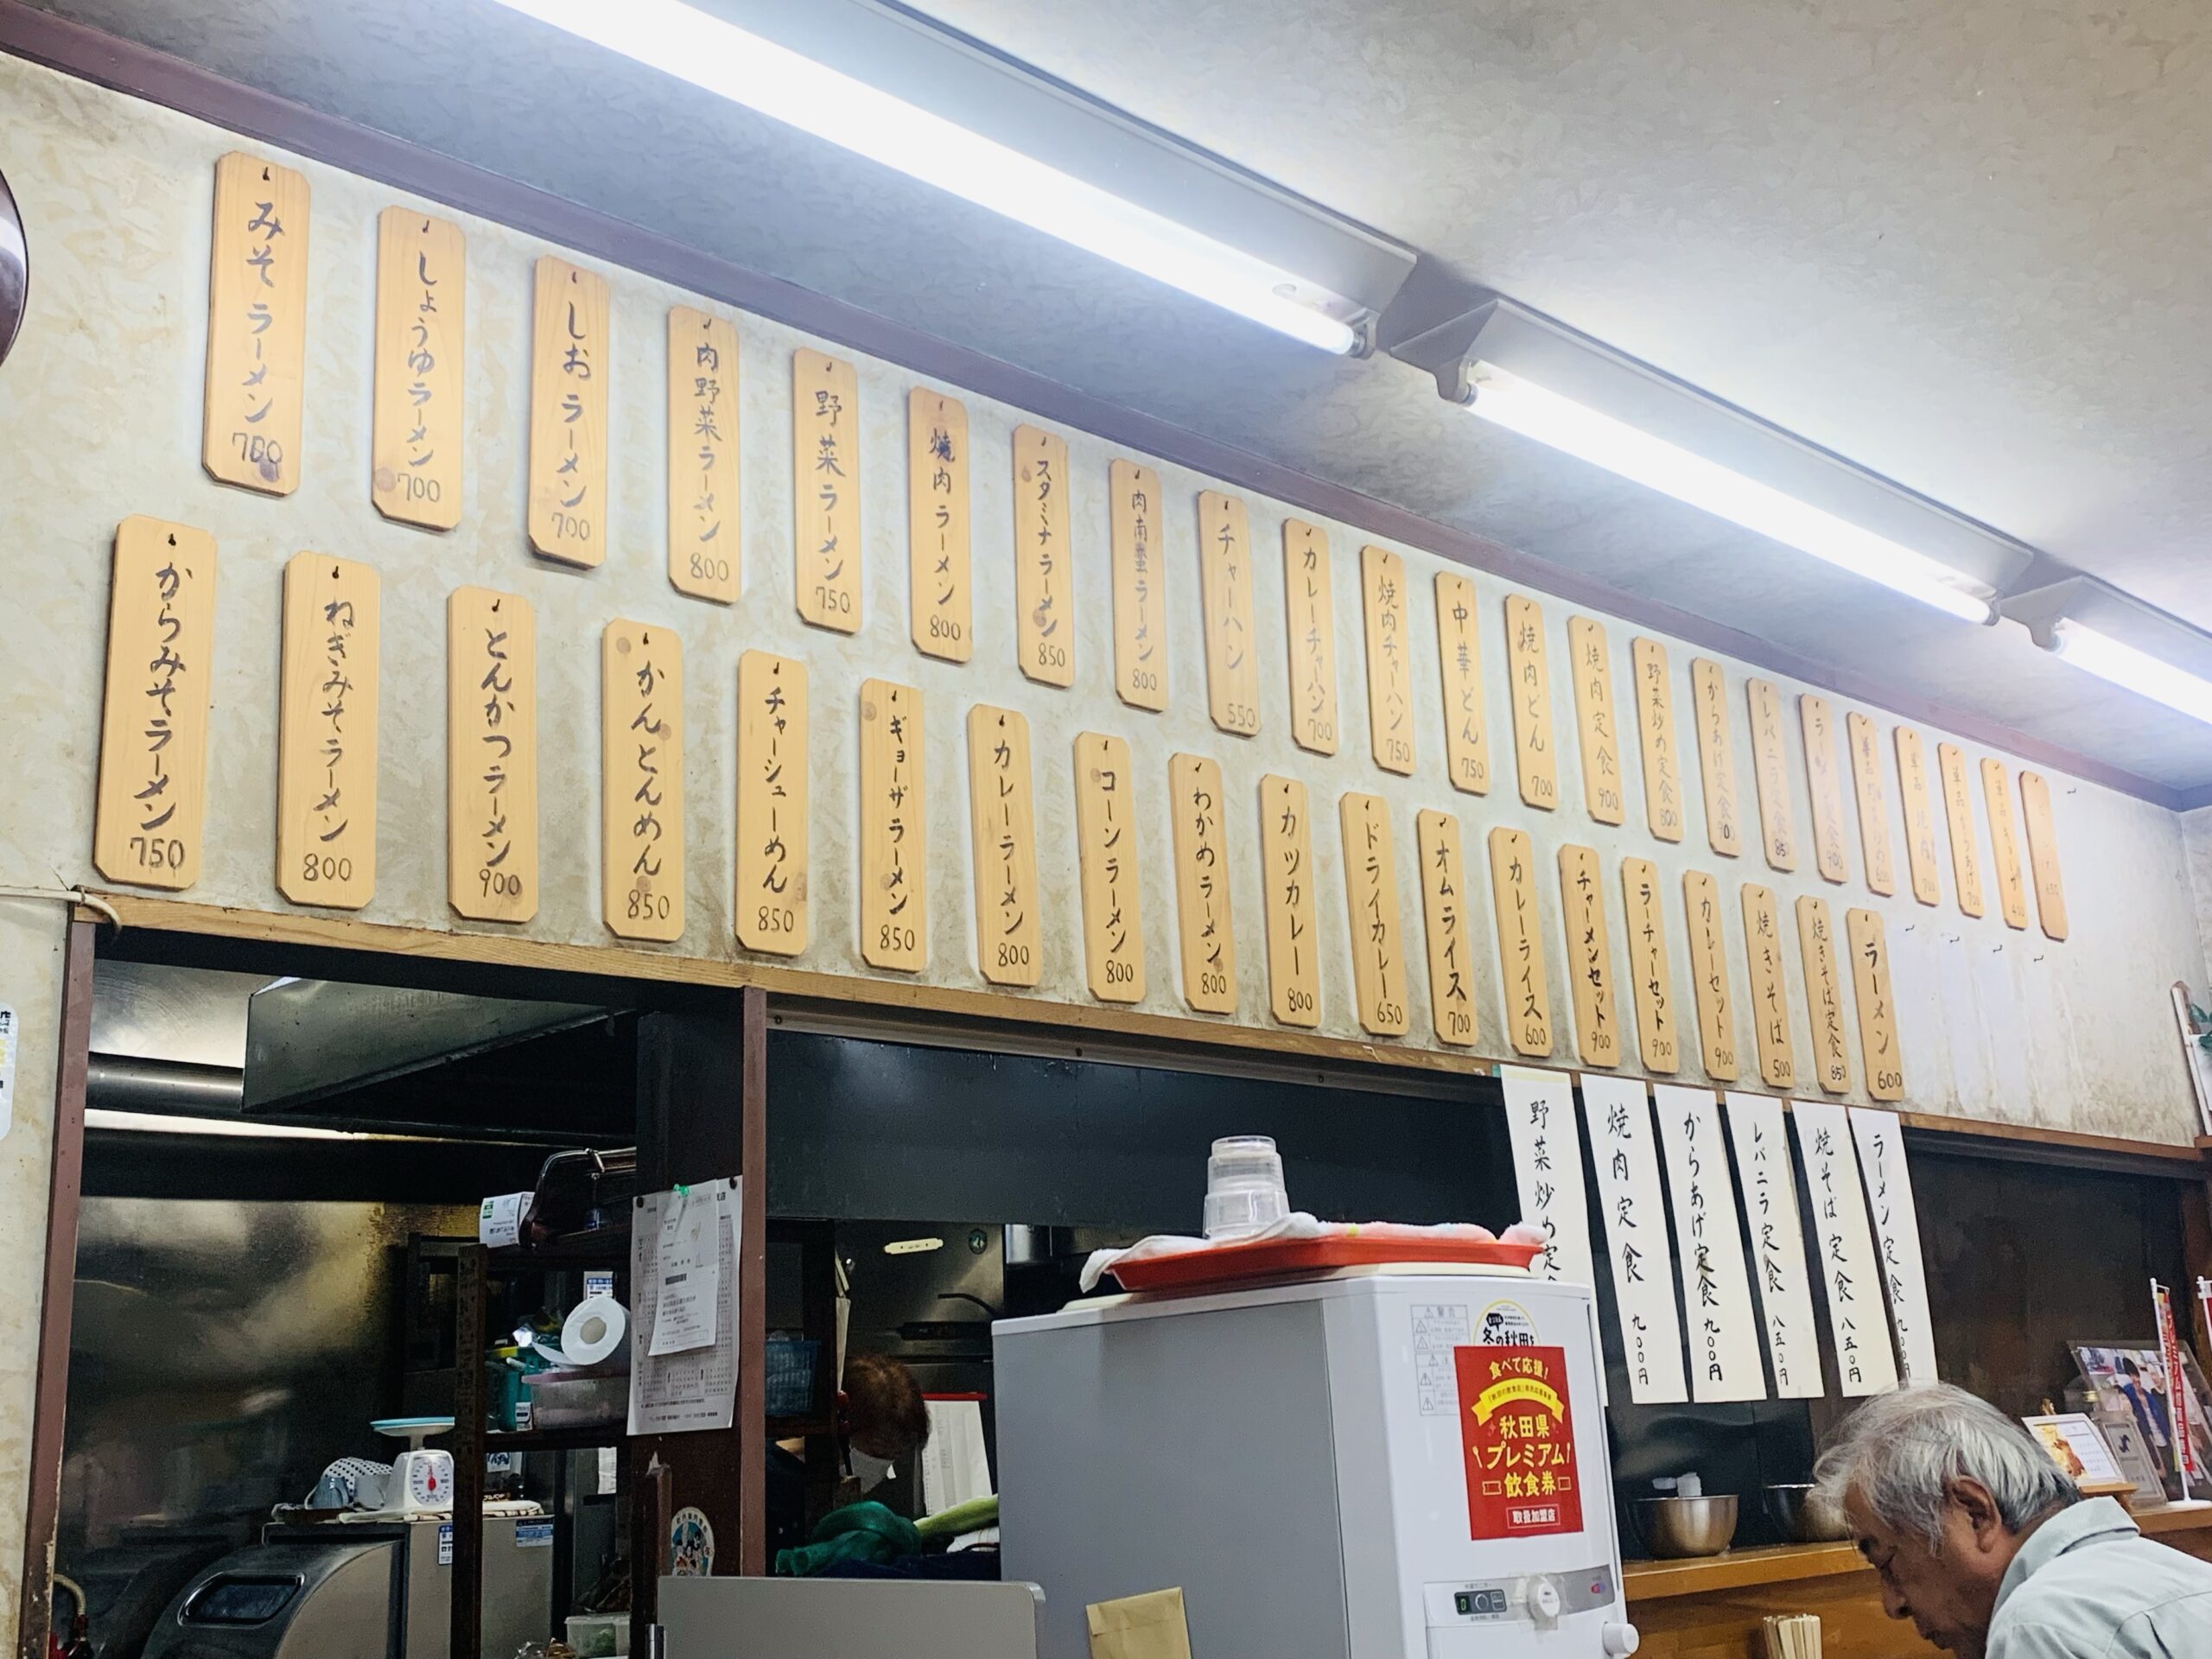 みそラーメン 700
しょうゆラーメン 700
しおラーメン 700
肉野菜ラーメン 800
野菜ラーメン 750
焼肉ラーメン 800
スタミナラーメン 850
肉南蛮ラーメン 800
チャーハン 550
カレーチャーハン 700
焼肉チャーハン 750
中華どん 750
焼肉どん 700
焼肉定食 900
野菜炒め定食 800
からあげ定食
レバニラ定食 850
定食 900
単品
単品
単品からあげ
からみそラーメン 750
ねぎみそラーメン 800
とんかつラーメン 900
かんとんめん 850
チャーシューめん 850
ギョーザラーメン 850
カレーラーメン 800
コーンラーメン 800
わかめラーメン 800
カツカレー 800
ドライカレー 650
オムライス 700
カレーライス 600
チャーメンセット 900
ラーチャーセット 900
カレーセット 900
焼きそば 500
焼きそば定食 850
ラーメン 600
野菜炒め定
焼肉定食 九〇〇円
からあげ定食 九〇〇円
レバニラ定食 八五〇円
焼そば定食 八五〇円
ラーメン定食 九〇〇円
冬の秋田を
食べて応援!
秋田県
プレミアム
飲食券
取扱加盟店